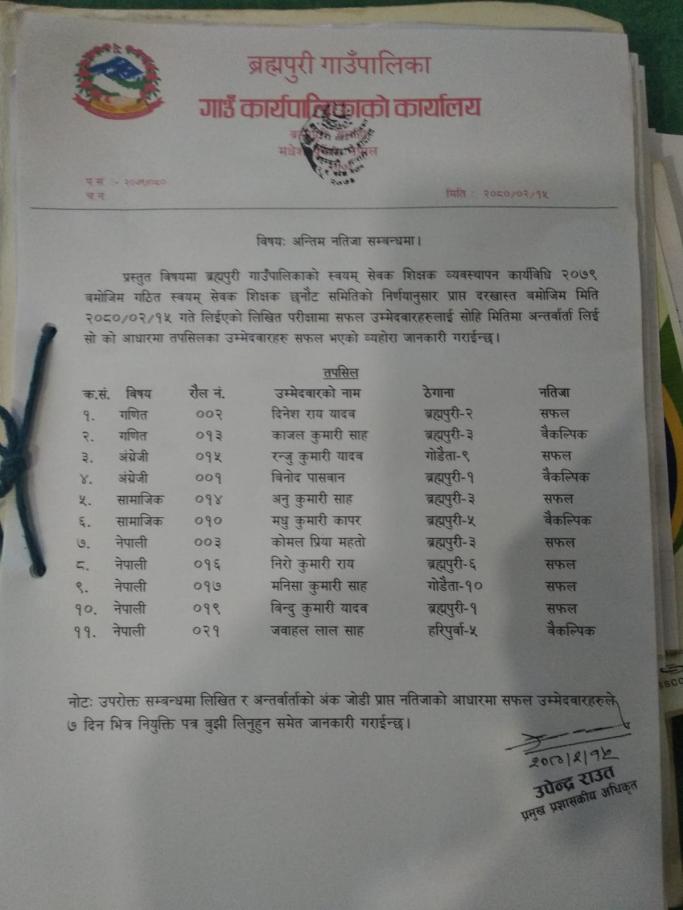 ब्रह्मपुरी गाउँपालिका
गाउँ कार्यपालिकाको कार्यालय
प.सं. :- २०७९/०८०
च.नं.
मिति : २०८०/०२/१५
विषयः अन्तिम नतिजा सम्बन्धमा।
प्रस्तुत विषयमा ब्रह्मपुरी गाउँपालिकाको स्वयम् सेवक शिक्षक व्यवस्थापन कार्यविधि २०७९
बमोजिम गठित स्वयम् सेवक शिक्षक छनौट समितिको निर्णयानुसार प्राप्त दरखास्त बमोजिम मिति
२०८०/०२/१५ गते लिईएको लिखित परीक्षामा सफल उम्मेदवारहरुलाई सोहि मितिमा अन्तर्वार्ता लिई
सो को आधारमा तपसिलका उम्मेदवारहरु सफल भएको व्यहोरा जानकारी गराईन्छ।
तपसिल
क.सं. विषय रौल नं. उम्मेदवारको नाम ठेगाना नतिजा
१. गणित ००२ दिनेश राय यादव ब्रह्मपुरी-२ सफल
२. गणित ०१३ काजल कुमारी साह ब्रह्मपुरी-३ वैकल्पिक
३. अंग्रेजी ०१५ रन्जु कुमारी यादव गोडैता-९ सफल
४. अंग्रेजी ००१ बिनोद पासवान ब्रह्मपुरी-१ वैकल्पिक
५. सामाजिक ०१४ अनु कुमारी साह ब्रह्मपुरी-३ सफल
६. सामाजिक ०१० मधु कुमारी कापर ब्रह्मपुरी-५ वैकल्पिक
७. नेपाली ००३ कोमल प्रिया महतो ब्रह्मपुरी-३ सफल
८. नेपाली ०१६ निरो कुमारी राय ब्रह्मपुरी-६ सफल
९. नेपाली ०१७ मनिसा कुमारी साह गोडैता-१० सफल
१०. नेपाली ०१९ बिन्दु कुमारी यादव ब्रह्मपुरी-१ सफल
११. नेपाली ०२१ जवाहल लाल साह हरिपुर्वा-५ वैकल्पिक
नोटः उपरोक्त सम्बन्धमा लिखित र अन्तर्वार्ताको अंक जोडी प्राप्त नतिजाको आधारमा सफल उम्मेदवारहरुले
७ दिन भित्र नियुक्ति पत्र बुझी लिनुहुन समेत जानकारी गराईन्छ।
२०८०/२/१५
उपेन्द्र राउत
प्रमुख प्रशासकीय अधिकृत